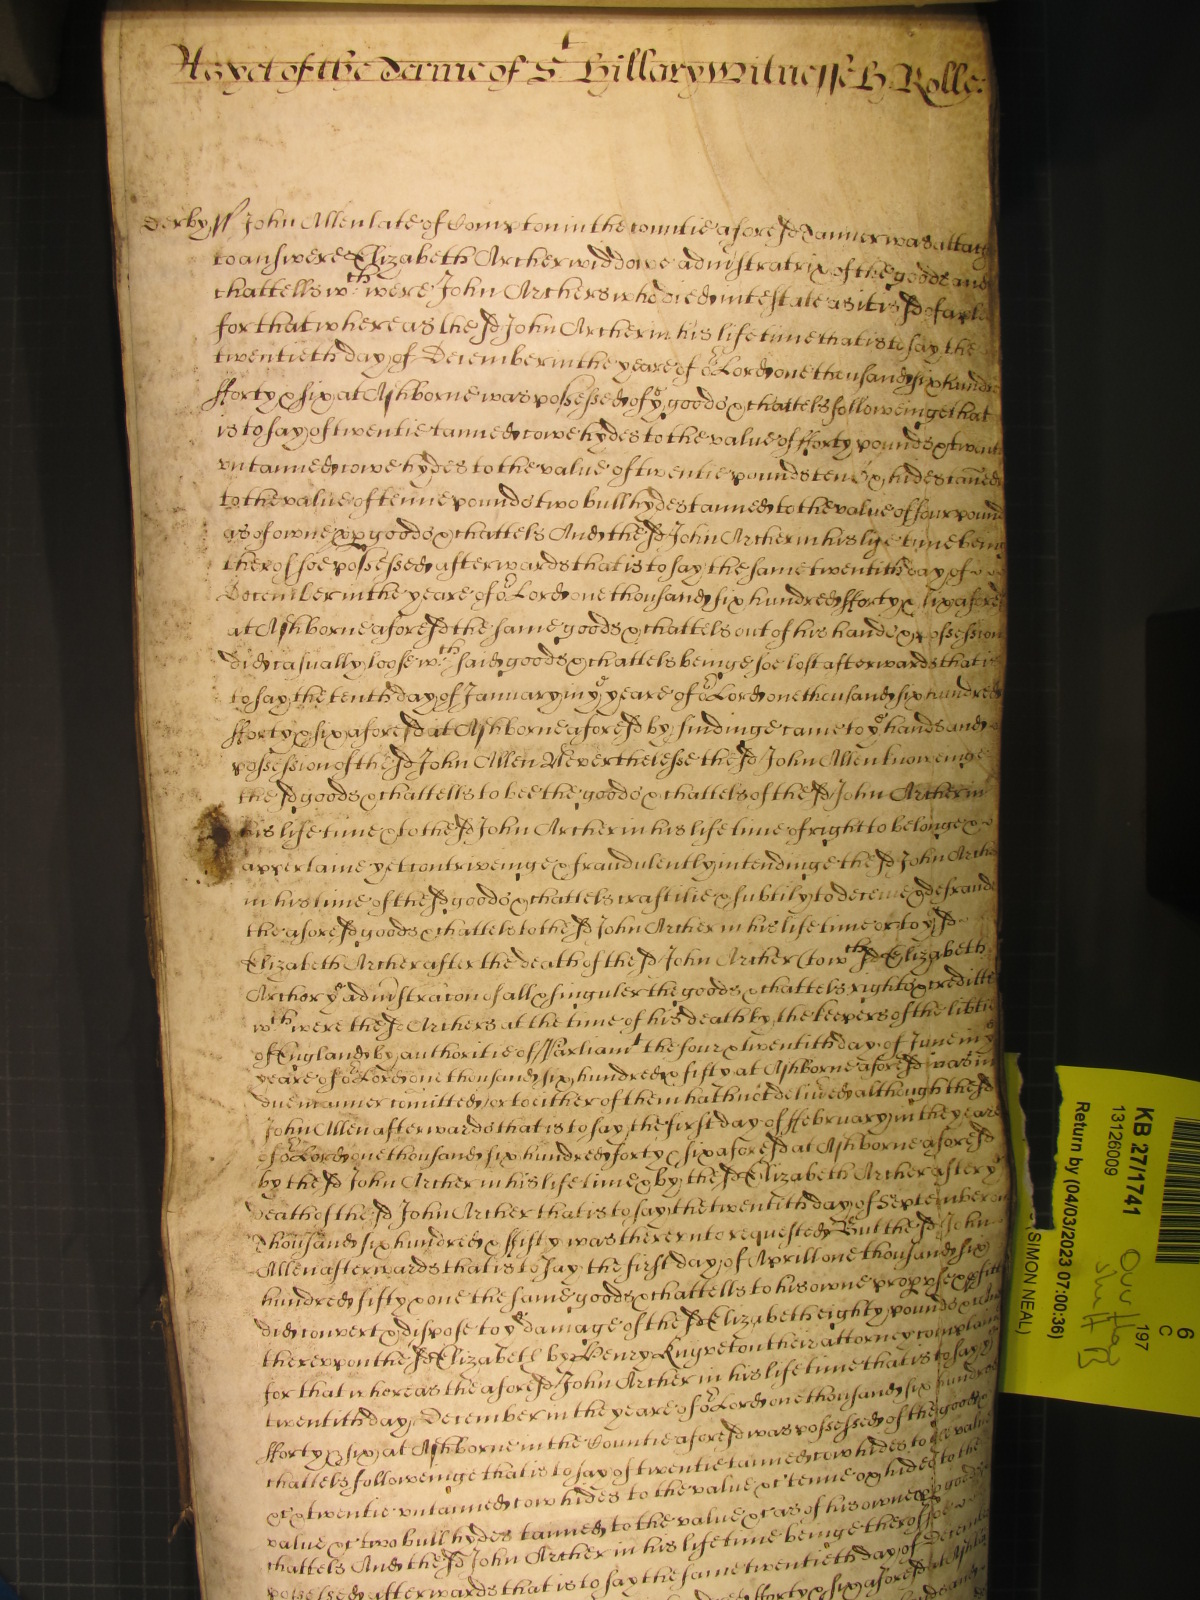 As yet of the Terme of St Hillary Witnesse H: Rolle:
Derby ss John Allen late of Compton in the countie aforesd Tanner was attatc
to answere Elizabeth Archer widdowe admstratrix of the goods and
chattells wch were John Archers who died intestate as it is sd of a
for that whereas the sd John Archer in his life time that is to say the
twentieth day of December in the yeare of or Lord one thousand six hundre
fforty & six at Ashborne was possessed of ye goods & chattels followeinge that
is to say of twentie tanned cowe hydes to the value of fforty pounds & twent
untanned cowe hydes to the value of twentie pounds tenn ox hides tan̄ed
to the value of tenne pounds two bull hydes tanned to the value of four pound
as of owne pp goods & chattels And the sd John Archer in his life time being
therof soe possessed afterwards that is to say the same twentith day of
December in the yeare of or Lord one thousand six hundred fforty & six afore
at Ashborne aforesd the same goods & chattels out of his hands & possession
did casually loose wch said goods & chattels beinge soe lost afterwards that is
to say the tenth day of January in ye yeare of or Lord one thousand six hundred
fforty & six aforesd at Ashborne aforesd by findinge came to ye hands and
possession of the sd John Allen Neverthelesse the sd John Allen knoweinge
the sd goods & chattells to bee the goods & chattels of the sd John Archer in
his life time & to the sd John Archer in his life time of right to belonge &
appertaine yet contriveinge & fraudulently intendinge the sd John Arche
in his time of the sd goods & chattels craftilie & subtily to deceive & defraude
the aforesd goods & chattels to the sd John Archer in his life time or to ye sd
Elizabeth Archer after the death of the sd John Archer (to wch sd Elizabeth
Archer ye admstracon of all & singuler the goods & chattels rights & creditts
wch were the sd Archers at the time of his death by the keepers of the libtie
of England by authoritie of Parliamt the four & twentith day of June in ye
yeare of or Lord one thousand six hundred & fifty at Ashborne aforesd was in
due manner comitted) or to either of them hath not delivered although the sd
John Allen afterwards that is to say the first day of ffebruary in the yeare
of or Lord one thousand six hundred forty & six aforesd at Ashborne aforesd
by the sd John Archer in his life time & by the sd Elizabeth Archer after ye
death of the sd John Archer that is to say the twentith day of September on
Thousand six hundred & ffifty was thereunto requested But the sd John
Allen afterwards that is to say the first day of Aprill one thousand six
hundred fifty & one the same goods & chattells to his owne propp use & 
did convert & dispose to ye damage of the sd Elizabeth eighty pounds &
thereupon the sd Elizabeth by Henry Kngveton their attorney complain
for that whereas the aforesd John Archer in his life time that is to say ye
twentith day December in the yeare of or Lord one thousand six hundred
fforty & six at Ashborne in the Countie aforesd was possessed of the goods &
chattels followeinge that is to say of twentie tanned cow hides to ye value
&c twentie untanned cow hides to the value &c tenne ox hides to the
value &c two bull hydes tanned to the value &c as of his owne pp goods
chattels And the sd John Archer in his life time beinge therof soe
possessed afterwards that is to say the same twentieth day of Decemb
fforty & six aforesd at Ashb
KB 27/1741
13126009
Return by (04/03/2023 07:00:36)
(SIMON NEAL)
197
6
C